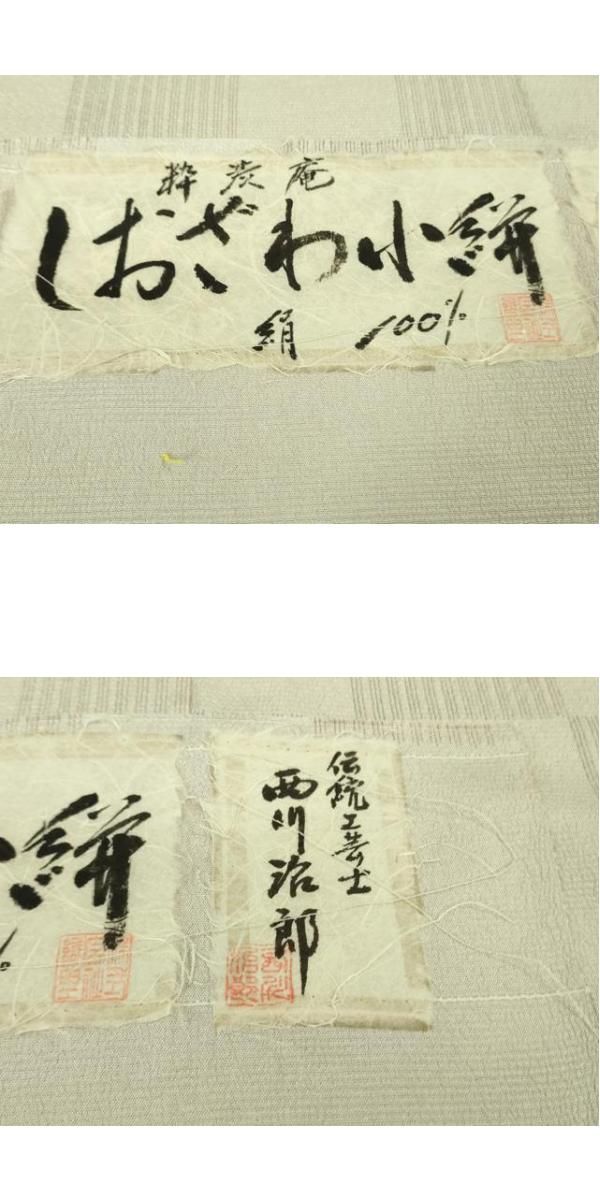 粋炭庵
しおざわ小絣
絹 100%
絣
%
伝統工芸士
西川治郎